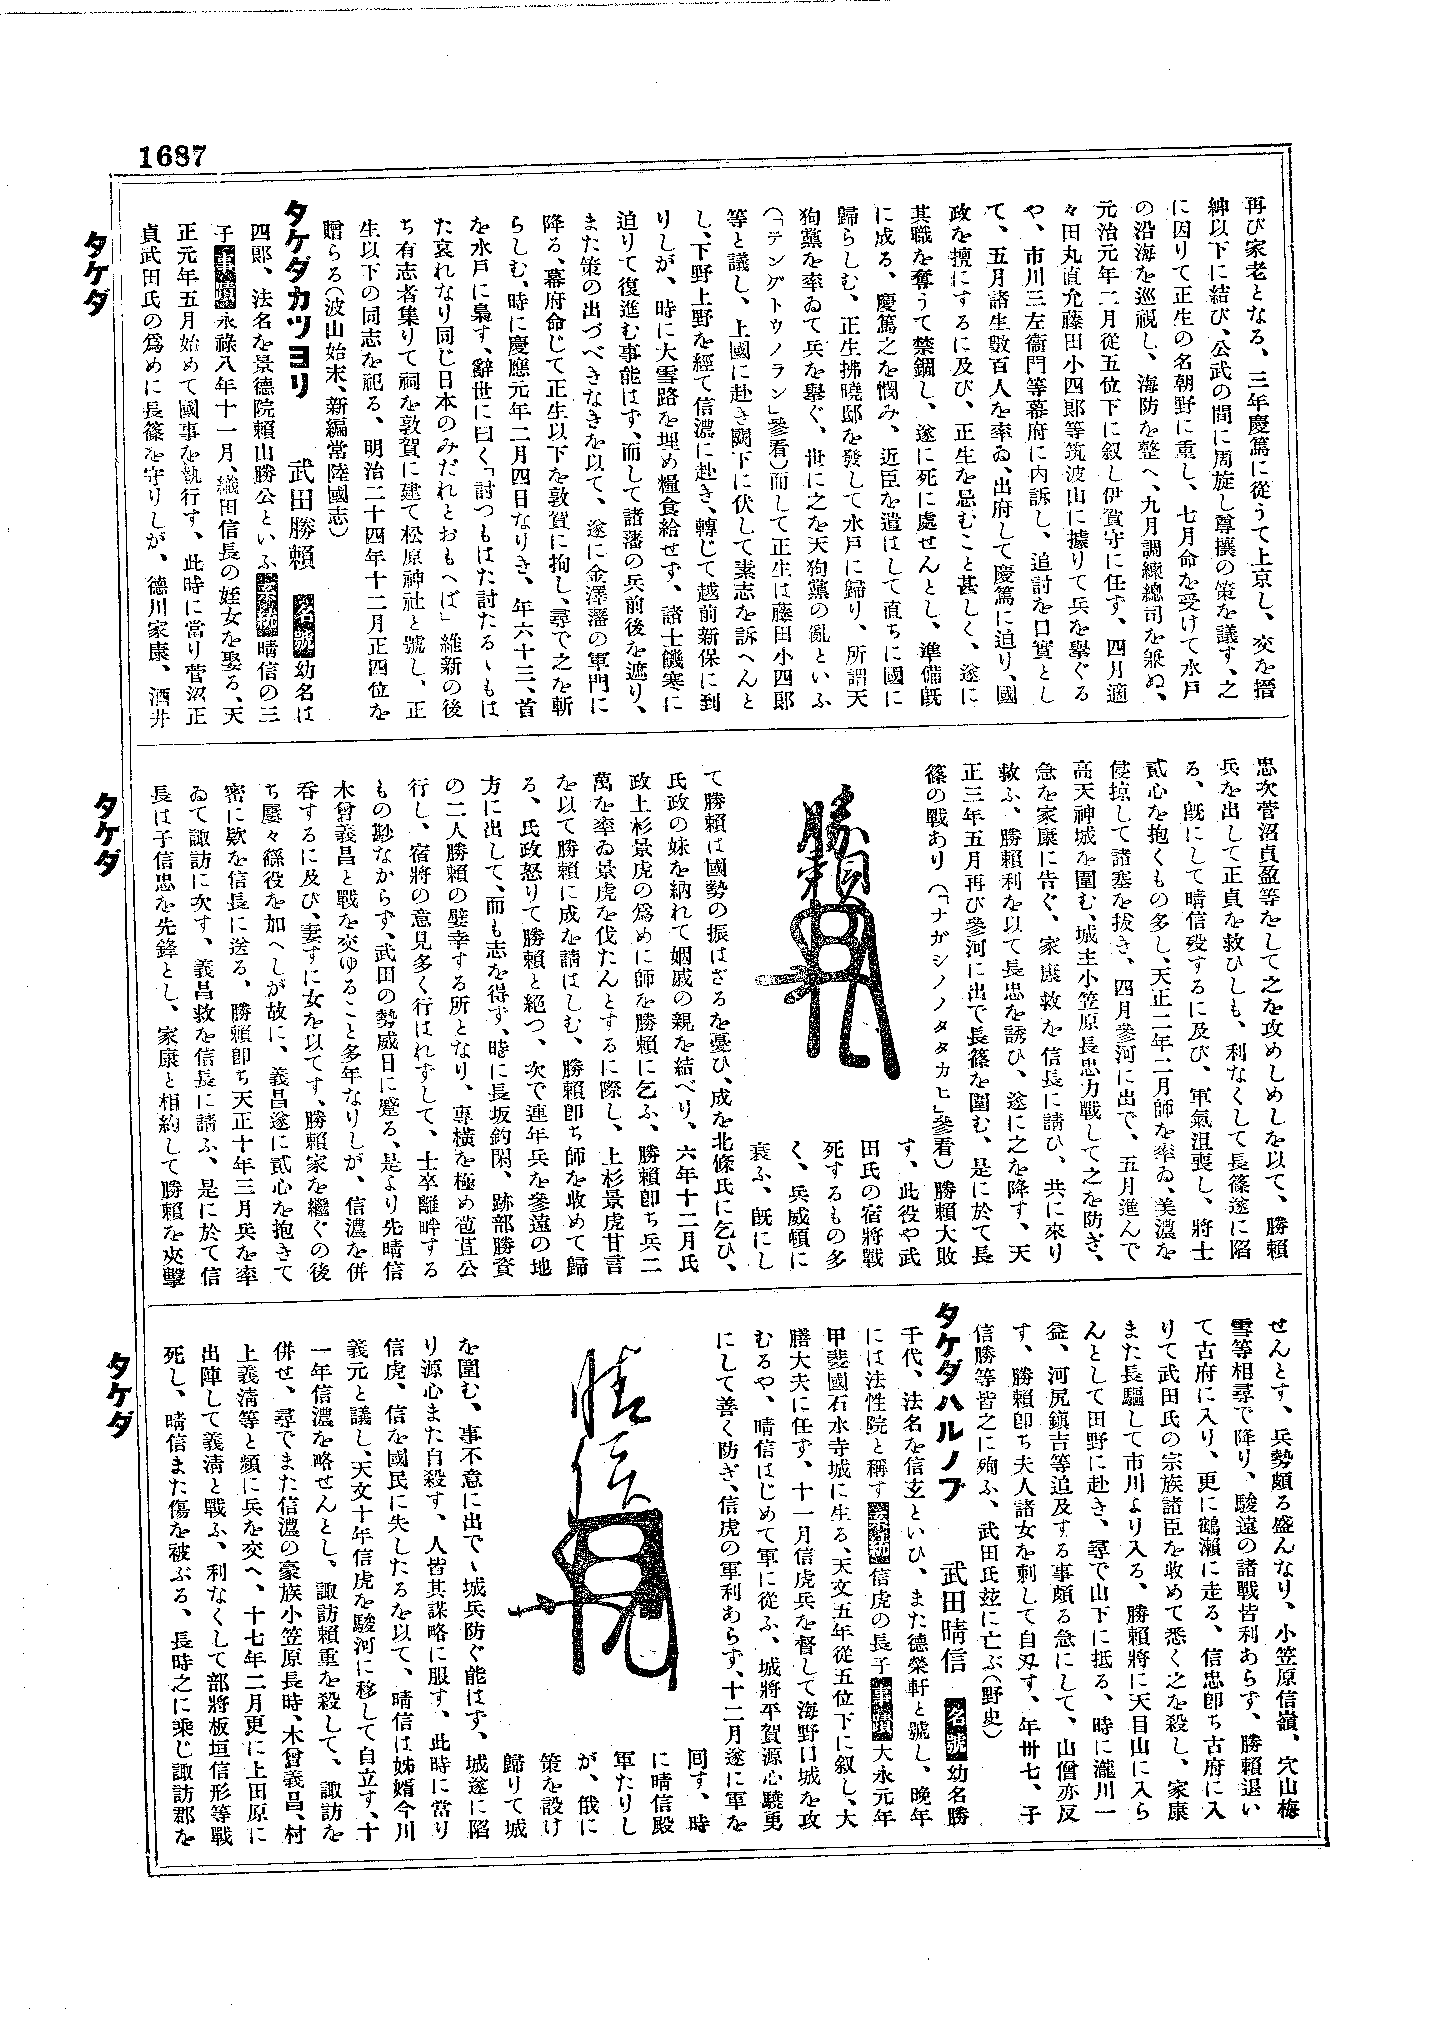 1687
再び家老となる、三年慶篤に從うて上京し、交を搢
紳以下に結び、公武の間に周旋し尊攘の策を議す、之
に因りて正生の名朝野に重し、七月命を受けて水戸
の沿海を巡視し、海防を整へ、九月調練總司を兼ぬ、
元治元年二月從五位下に叙し伊賀守に任す、四月適
々田丸直允藤田小四郎等筑波山に據りて兵を擧ぐる
や、市川三左衞門等幕府に内訴し、追討を口實とし
て、五月諸生數百人を率ゐ、出府して慶篤に迫り、國
政を擅にするに及び、正生を忌むこと甚しく、遂に
其職を奪うて禁錮し、遂に死に處せんとし、準備既
に成る、慶篤之を憫み、近臣を遣はして直ちに國に
歸らしむ、正生拂曉邸を發して水戸に歸り、所謂天
狗黨を率ゐて兵を擧ぐ、世に之を天狗黨の亂といふ
(「テングトウノラン」參看)而して正生は藤田小四郎
等と議し、上國に赴き闕下に伏して素志を訴へんと
し、下野上野を經て信濃に赴き、轉じて越前新保に到
りしが、時に大雪路を埋め糧食給せず、諸士饑寒に
迫りて復進む事能はず、而して諸藩の兵前後を遮り、
また策の出づべきなきを以て、遂に金澤藩の軍門に
降る、幕府命じて正生以下を敦賀に拘し、尋で之を斬
らしむ、時に慶應元年二月四日なりき、年六十三、首
を水戸に梟す、辭世に曰く「討つもはた討たるゝもは
た哀れなり同じ日本のみだれとおもへば」維新の後
ち有志者集りて祠を敦賀に建て松原神社と號し、正
生以下の同志を祀る、明治二十四年十二月正四位を
贈らる(波山始末、新編常陸國志)
タケダカツヨリ 武田勝賴 名號 幼名は
四郎、法名を景德院賴山勝公といふ 家系 晴信の三
子 事蹟 永祿八年十一月、織田信長の姪女を娶る、天
正元年五月始めて國事を執行す、此時に當り菅沼正
貞武田氏の爲めに長篠を守りしが、德川家康、酒井
タケダ
忠次菅沼貞盈等をして之を攻めしめしを以て、勝賴
兵を出して正貞を救ひしも、利なくして長篠遂に陷
る、既にして晴信歿するに及び、軍氣沮喪し、將士
貳心を抱くもの多し、天正二年二月師を率ゐ、美濃を
侵掠して諸塞を拔き、四月參河に出で、五月進んで
高天神城を圍む、城主小笠原長忠力戰して之を防ぎ、
急を家康に告ぐ、家康救を信長に請ひ、共に來り
救ふ、勝賴利を以て長忠を誘ひ、遂に之を降す、天
正三年五月再び參河に出で長篠を圍む、是に於て長
篠の戰あり(「ナガシノノタタカヒ」參看)勝賴大敗
す、此役や武
田氏の宿將戰
死するもの多
く、兵威頓に
衰ふ、既にし
勝賴
て勝賴は國勢の振はざるを憂ひ、成を北條氏に乞ひ、
氏政の妹を納れて姻戚の親を結べり、六年十二月氏
政上杉景虎の爲めに師を勝賴に乞ふ、勝賴卽ち兵二
萬を率ゐ景虎を伐たんとするに際し、上杉景虎甘言
を以て勝賴に成を請はしむ、勝賴卽ち師を收めて歸
る、氏政怒りて勝賴と絕つ、次で連年兵を參遠の地
方に出して、而も志を得ず、時に長坂釣閑、跡部勝資
の二人勝賴の嬖幸する所となり、專橫を極め苞苴公
行し、宿將の意見多く行はれずして、士卒離畔する
もの尠なからず、武田の勢威日に蹙る、是より先晴信
木曾義昌と戰を交ゆること多年なりしが、信濃を併
呑するに及び、妻すに女を以てす、勝賴家を繼ぐの後
ち屢々徭役を加へしが故に、義昌遂に貳心を抱きて
密に欵を信長に送る、勝賴卽ち天正十年三月兵を率
ゐて諏訪に次す、義昌救を信長に請ふ、是に於て信
長は子信忠を先鋒とし、家康と相約して勝賴を夾擊
タケダ
せんとす、兵勢頗る盛んなり、小笠原信嶺、穴山梅
雪等相尋で降り、駿遠の諸戰皆利あらず、勝賴退い
て古府に入り、更に鶴瀨に走る、信忠卽ち古府に入
りて武田氏の宗族諸臣を收めて悉く之を殺し、家康
また長驅して市川より入る、勝賴將に天目山に入ら
んとして田野に赴き、尋で山下に抵る、時に瀧川一
益、河尻鎭吉等追及する事頗る急にして、山僧亦反
す、勝賴卽ち夫人諸女を刺して自刄す、年卅七、子
信勝等皆之に殉ふ、武田氏玆に亡ぶ(野史)
タケダハルノブ 武田晴信 名號 幼名勝
千代、法名を信玄といひ、また德榮軒と號し、晚年
には法性院と稱す 家系 信虎の長子 事蹟 大永元年
甲斐國石水寺城に生る、天文五年從五位下に叙し、大
膳大夫に任ず、十一月信虎兵を督して海野口城を攻
むるや、晴信はじめて軍に從ふ、城將平賀源心驍勇
にして善く防ぎ、信虎の軍利あらず、十二月遂に軍を
囘す、時
に晴信殿
軍たりし
が、俄に
策を設け
歸りて城
晴信
を圍む、事不意に出でゝ城兵防ぐ能はず、城遂に陷
り源心また自殺す、人皆其謀略に服す、此時に當り
信虎、信を國民に失したるを以て、晴信は姊婿今川
義元と議し、天文十年信虎を駿河に移して自立す、十
一年信濃を略せんとし、諏訪賴重を殺して、諏訪を
併せ、尋でまた信濃の豪族小笠原長時、木曾義昌、村
上義淸等と頻に兵を交へ、十七年二月更に上田原に
出陣して義淸と戰ふ、利なくして部將板垣信形等戰
死し、晴信また傷を被ぶる、長時之に乘じ諏訪郡を
タケダ